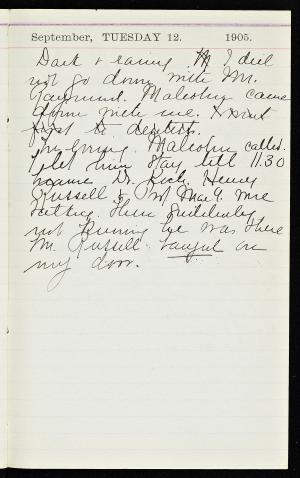 September, TUESDAY 12. 1905.
Dark & raining. I did
not go down with Mr.
Raymond. Malcolm came
down with me. & went
first to dentist.
In evening. Malcolm called.
I let him stay till 11.30
Dr. Rich. Henry
Russell & Prof. were
sitting there
not knowing he was there
Mr. Russell. banged on
my door.